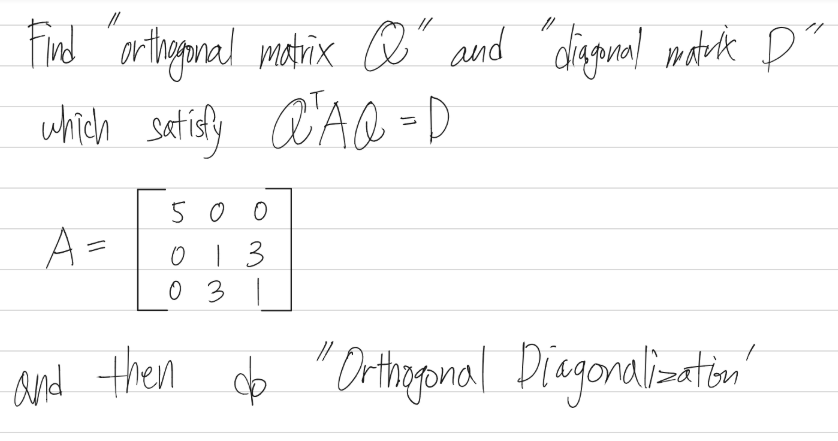 Find "orthogonal matrix Q" and "diagonal matrix D"
which satisfy QᵀAQ = D
A = [5 0 0
0 1 3
0 3 1]
and then do "Orthogonal Diagonalization'